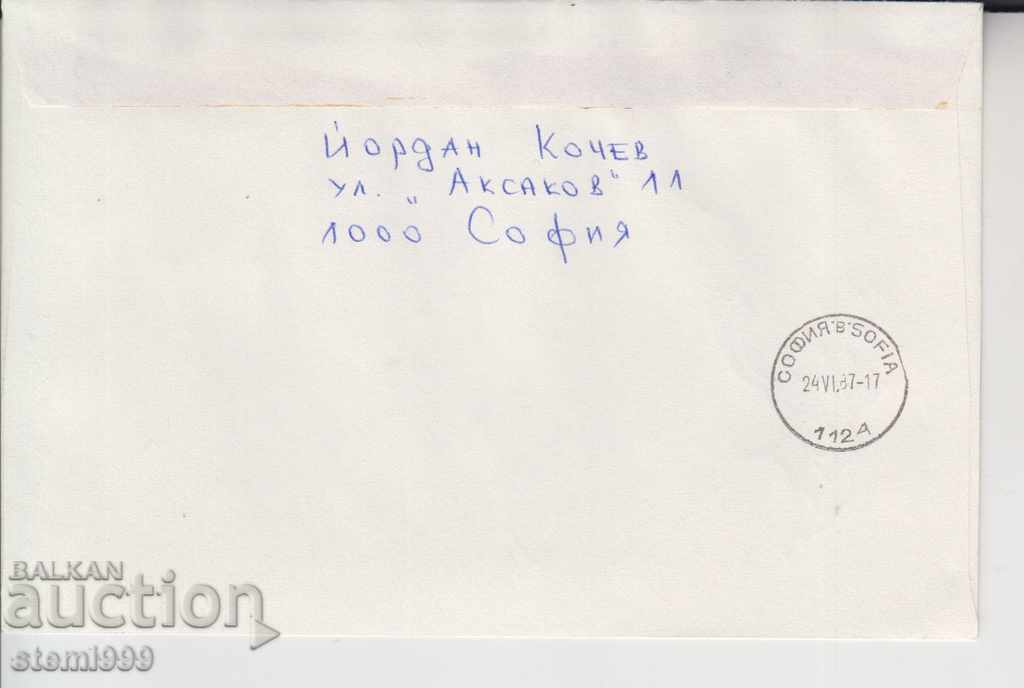 Йордан Кочев
ул. „Аксаков" 11
1000 София
СОФИЯ·В·SOFIA
24VI.87-17
1124
BALKAN
auction
stemi999